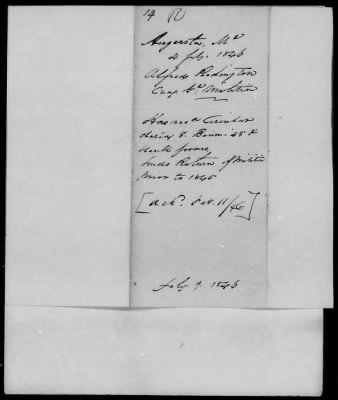 14 R
Augusta, Me
4 Feby. 1846
Alfred Redington
Militia
Has recd Circular
dated 8. &
blank forms,
sends Return of Militia
prior to 1845
[ackd. Feb. 11/46]
Feby 9. 1846